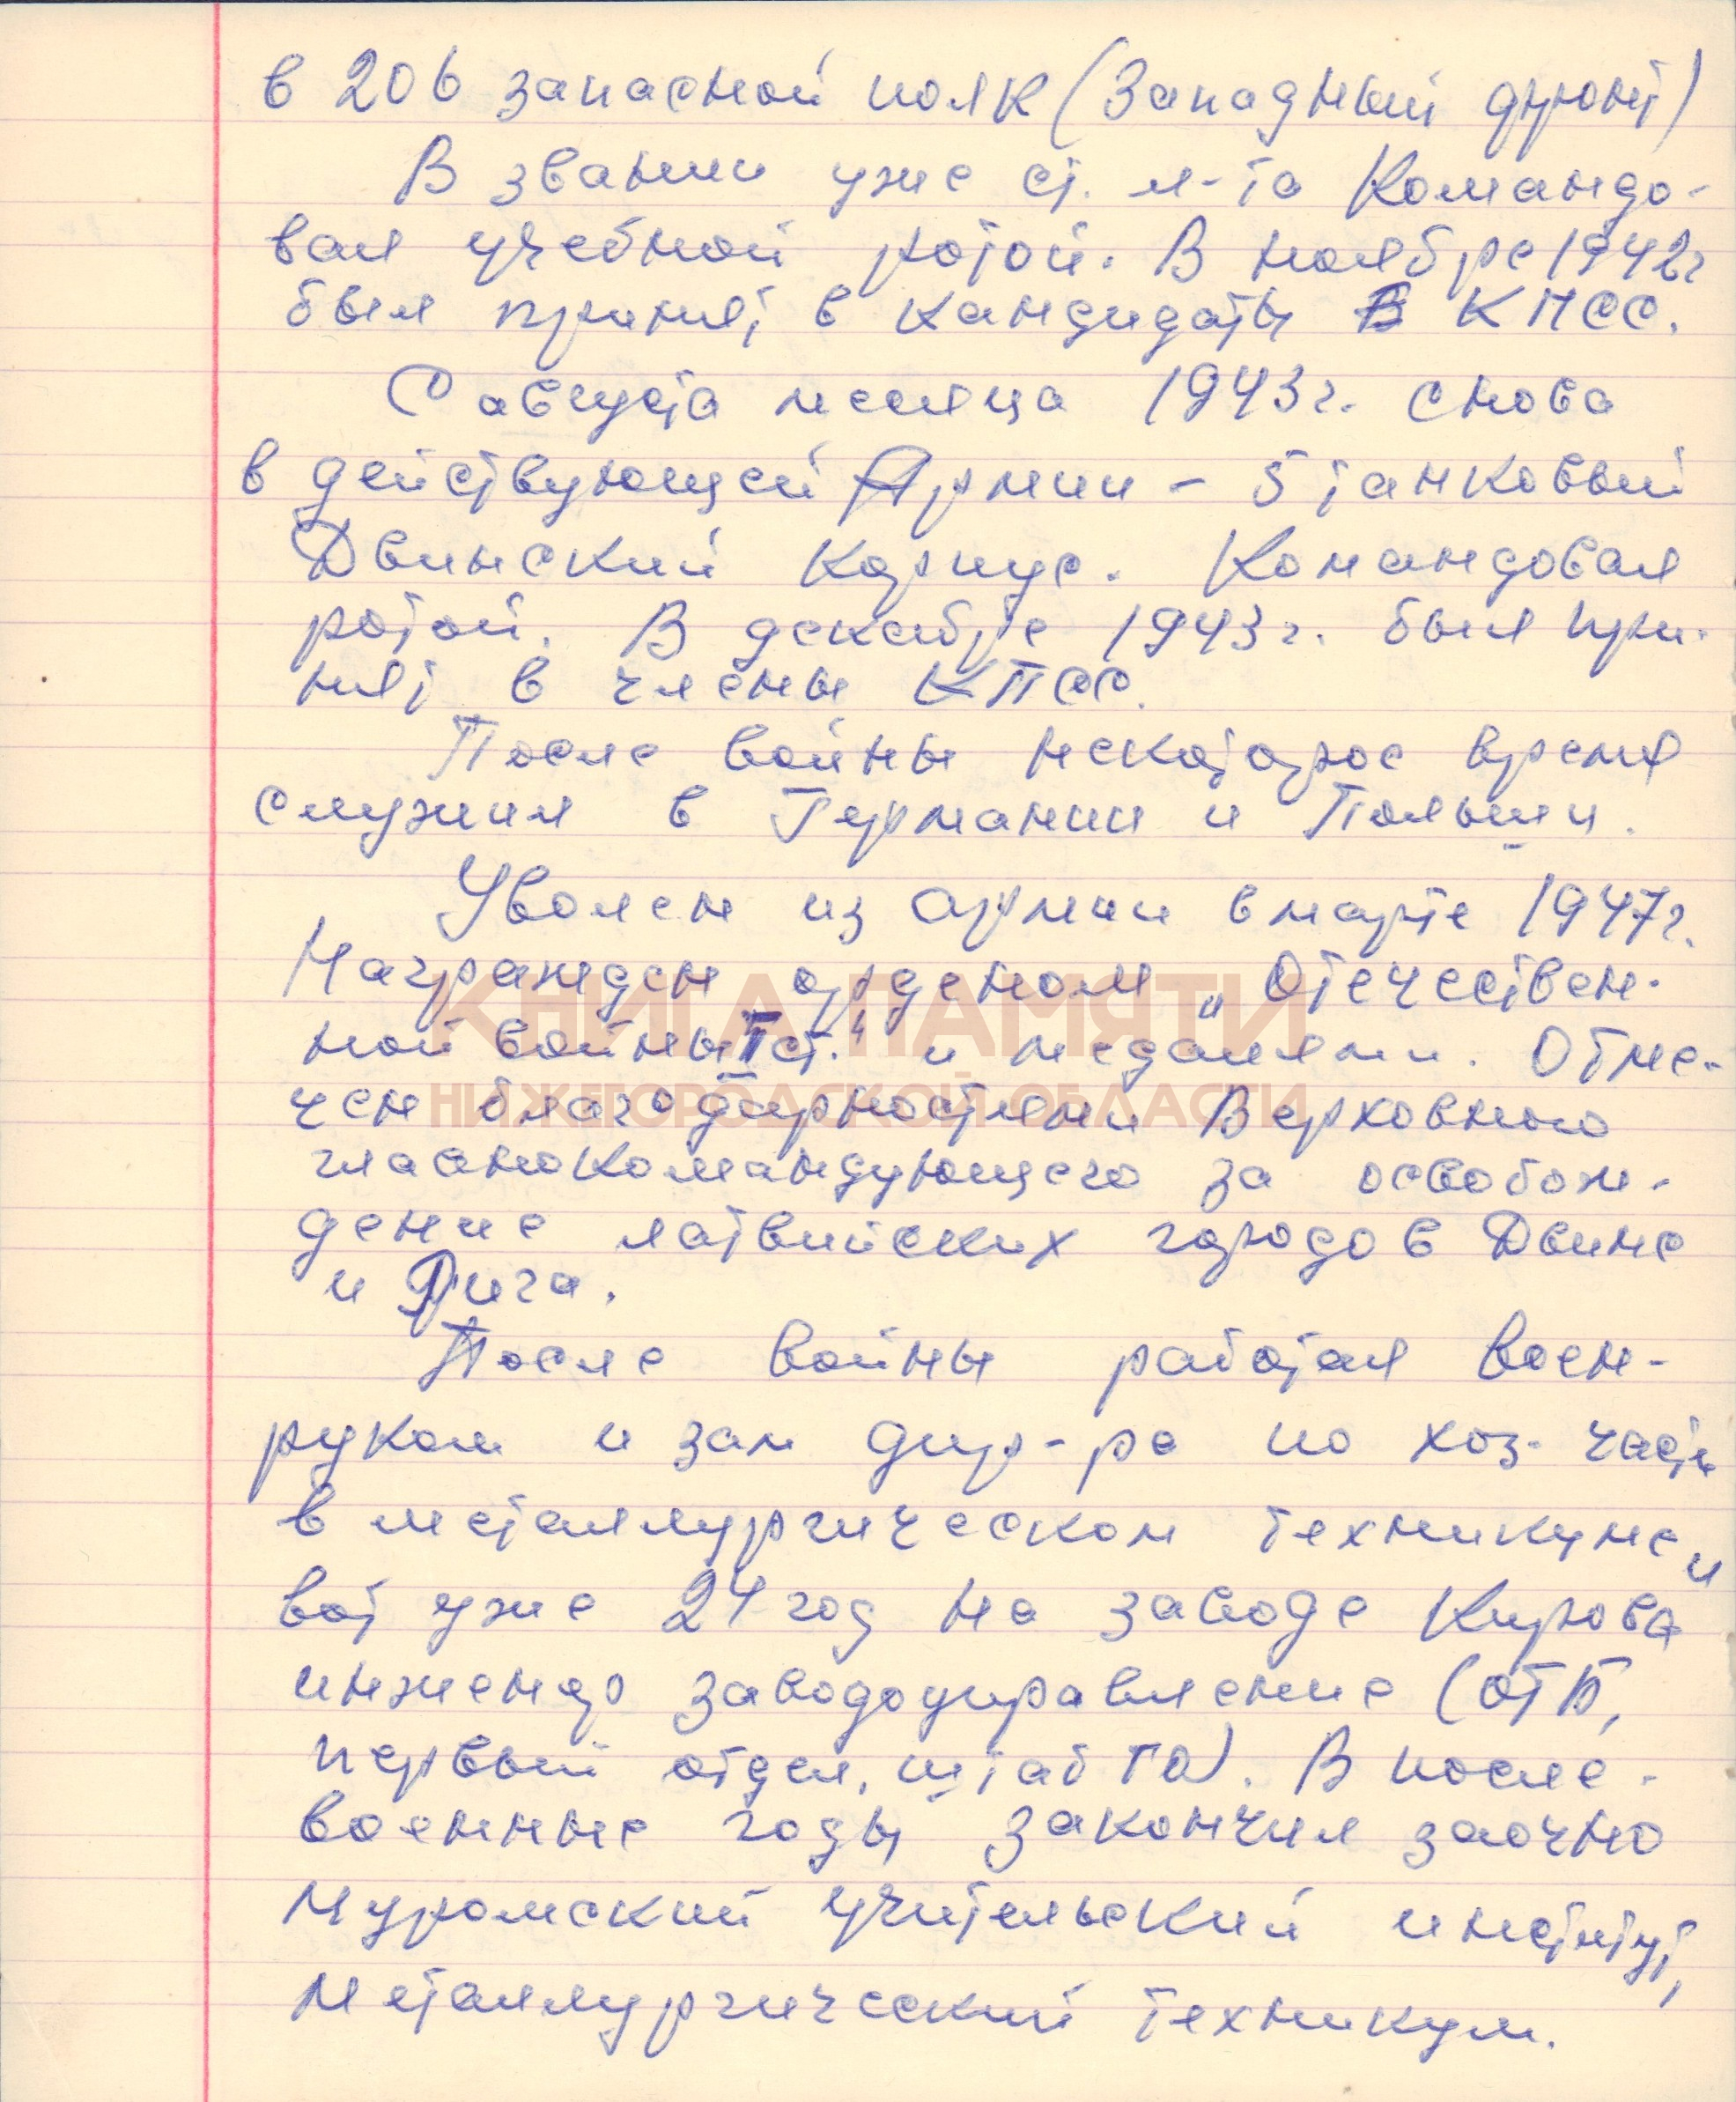 в 206 запасной полк (Западный фронт)
В звании уже ст. л-та командо-
вал учебной ротой. В ноябре 1942г
был принят в кандидаты в КПСС.
С августа месяца 1943г. снова
в действующей Армии - 5 танковый
Двинский корпус. Командовал
ротой. В декабре 1943г. был при-
нят в члены КПСС.
После войны некоторое время
служил в Германии и Польши.
Уволен из армии в марте 1947г.
Награжден орденом „Отечествен-
ной войны I ст." и медалями. Отме-
чен благодарностями Верховного
главнокомандующего за освобож-
дение латвийских городов Двинс
и Рига.
После войны работал воен-
руком и зам дир-ра по хоз. части
в металлургическом техникуме и
вот уже 24 год на заводе Кирова
инженер заводоуправление (ОТБ,
первый отдел, штаб ГО). В после-
военные годы закончил заочно
Муромский учительский институт,
Металлургический техникум.
КНИГА ПАМЯТИ
НИЖЕГОРОДСКОЙ ОБЛАСТИ